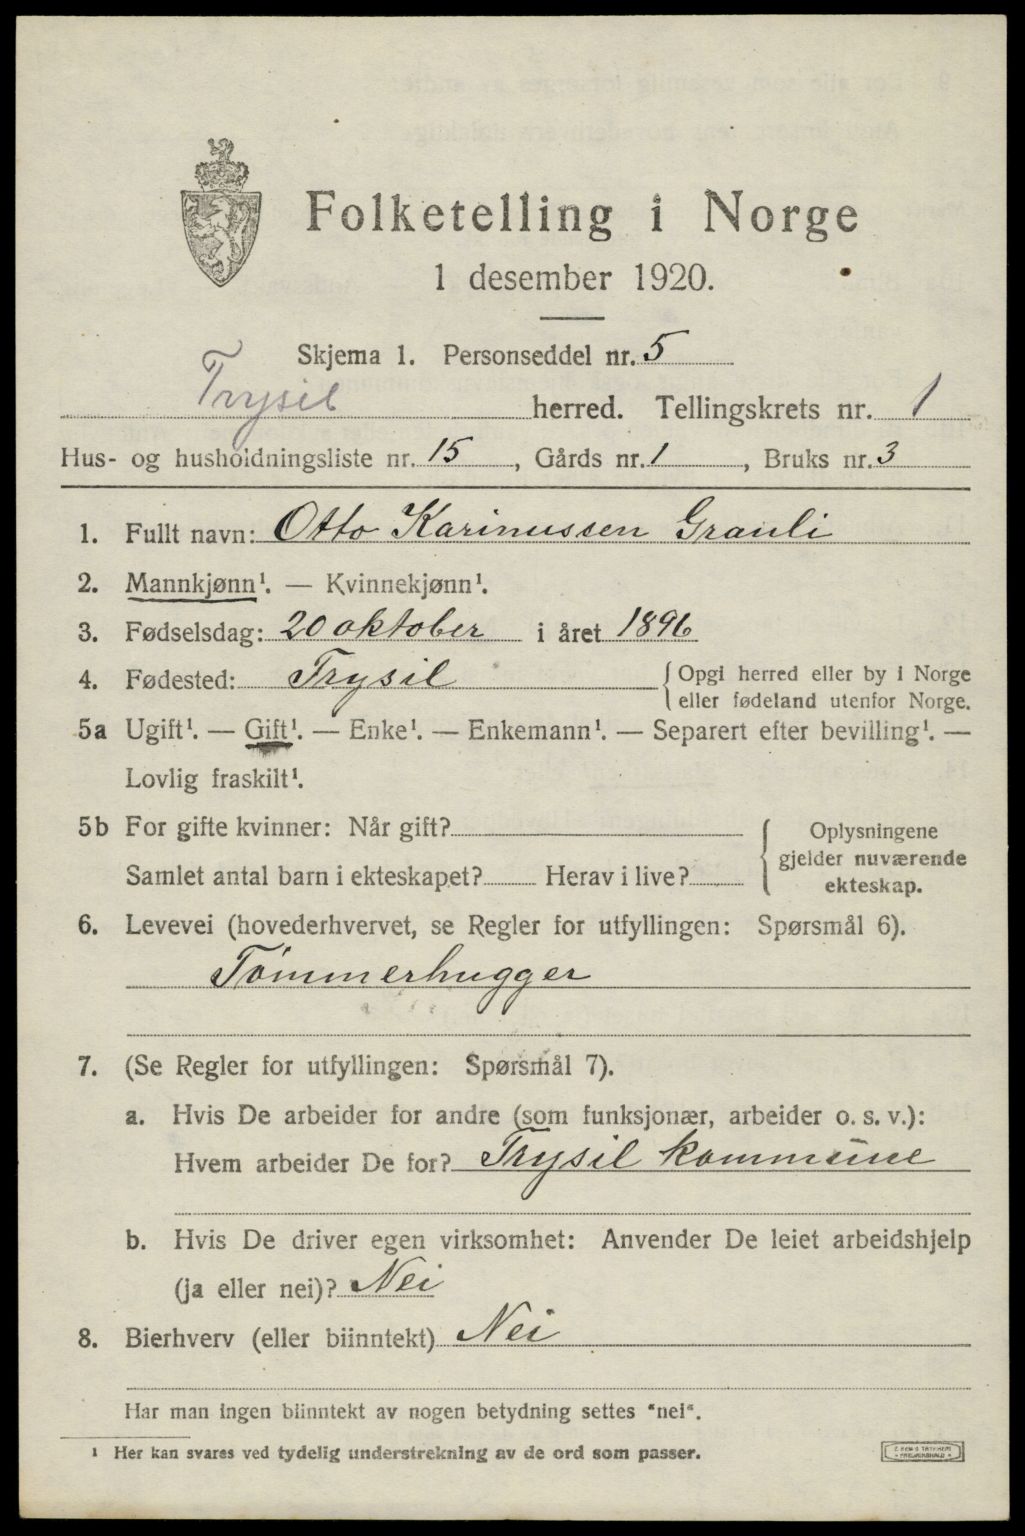 Folketelling i Norge
1 desember 1920.
Skjema 1. Personseddel nr. 5
Trysil herred. Tellingskrets nr. 1
Hus- og husholdningsliste nr. 15, Gårds nr. 1, Bruks nr. 3
1. Fullt navn: Otto Karinussen Granli
2. Mannkjønn¹. — Kvinnekjønn¹.
3. Fødselsdag: 20 oktober i året 1896
4. Fødested: Trysil { Opgi herred eller by i Norge
eller fødeland utenfor Norge.
5a Ugift¹. — Gift¹. — Enke¹. — Enkemann¹. — Separert efter bevilling¹. —
Lovlig fraskilt¹.
5b For gifte kvinner: Når gift? { Oplysningene
gjelder nuværende
Samlet antal barn i ekteskapet? Herav i live? ekteskap.
6. Levevei (hovederhvervet, se Regler for utfyllingen: Spørsmål 6).
Tømmerhugger
7. (Se Regler for utfyllingen: Spørsmål 7).
a. Hvis De arbeider for andre (som funksjonær, arbeider o. s. v.):
Hvem arbeider De for? Trysil kommune
b. Hvis De driver egen virksomhet: Anvender De leiet arbeidshjelp
(ja eller nei)? Nei
8. Bierhverv (eller biinntekt) Nei
Har man ingen biinntekt av nogen betydning settes "nei".
¹ Her kan svares ved tydelig understrekning av de ord som passer.